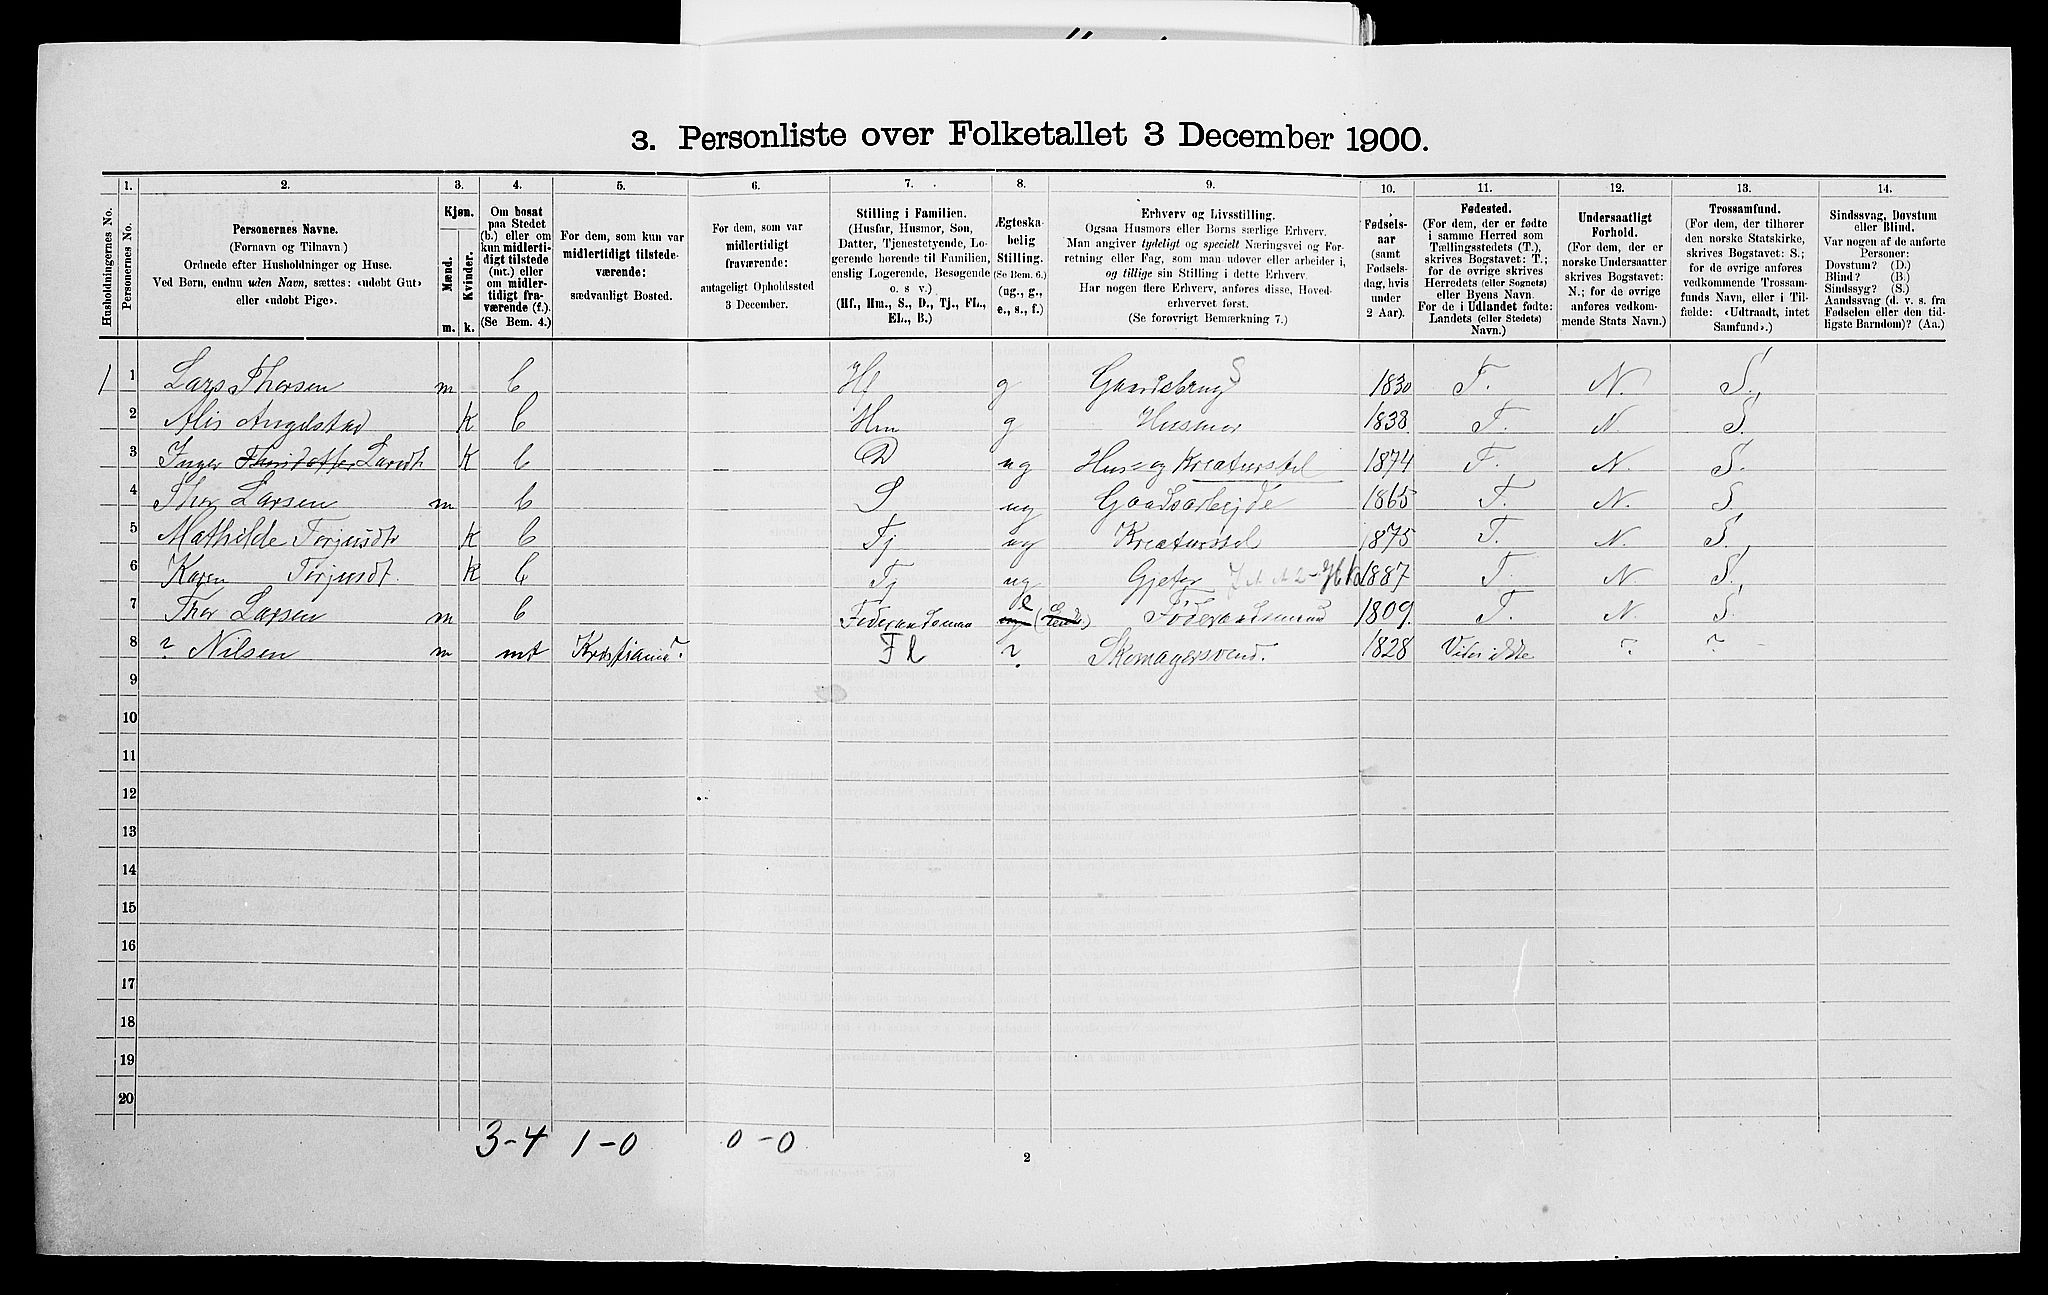 3. Personliste over Folketallet 3 December 1900.
Husholdningernes No.
1.
Personernes No.
2.
Personernes Navne.
(Fornavn og Tilnavn.)
Ordnede efter Husholdninger og Huse.
Ved Børn, endnu uden Navn, sættes: «udøbt Gut»
eller «udøbt Pige».
3.
Kjøn.
Mænd.
Kvinder.
m. k.
4.
Om bosat
paa Stedet
(b.) eller om
kun midlerti-
digt tilstede
(mt.) eller
om midler-
tidigt fra-
værende (f.).
(Se Bem. 4.)
5.
For dem, som kun var
midlertidigt tilstede-
værende:
sædvanligt Bosted.
6.
For dem, som var
midlertidigt
fraværende:
antageligt Opholdssted
3 December.
7.
Stilling i Familien.
(Husfar, Husmor, Søn,
Datter, Tjenestetyende, Lo-
gerende hørende til Familien,
enslig Logerende, Besøgende
o. s v.)
(Hf., Hm., S., D., Tj., FL.,
EL., B.)
8.
Ægteska-
belig
Stilling.
(Se Bem. 6.)
(ug., g.,
e., s., f.)
9.
Erhverv og Livsstilling.
Ogsaa Husmors eller Børns særlige Erhverv.
Man angiver tydeligt og specielt Næringsvei og For-
retning eller Fag, som man udøver eller arbeider i,
og tillige sin Stilling i dette Erhverv.
Har nogen flere Erhverv, anføres disse, Hoved-
erhvervet først.
(Se forøvrigt Bemærkning 7.)
10.
Fødsels-
aar
(samt
Fødsels-
dag, hvis
under
2 Aar).
11.
Fødested.
(For dem, der er fødte
i samme Herred som
Tællingsstedets (T.),
skrives Bogstavet: T.;
for de øvrige skrives
Herredets (eller Sognets)
eller Byens Navn.
For de i Udlandet fødte:
Landets (eller Stedets)
Navn.)
12.
Undersaatligt
Forhold.
(For dem, der er
norske Undersaatter
skrives Bogstavet:
N.; for de øvrige
anføres vedkom-
mende Stats Navn.)
13.
Trossamfund.
(For dem, der tilhører
den norske Statskirke,
skrives Bogstavet: S.;
for de øvrige anføres
vedkommende Trossam-
funds Navn, eller i Til-
fælde: «Udtraadt, intet
Samfund».)
14.
Sindssvag, Døvstum
eller Blind.
Var nogen af de anførte
Personer:
Døvstum? (D.)
Blind? (B.)
Sindssyg? (S.)
Aandssvag (d. v. s. fra
Fødselen eller den tid-
ligste Barndom)? (Aa.)
1 1 Lars Thorsen m b Hf g Gaardbrug S 1830 T. N. S.
2 Alis Angelstad k b Hm g Husmor 1838 T. N S.
3 Inger Larsdt. k b D ug Hus- og Kreaturstel 1874 T. N. S.
4 Thor Larsen m b S ug Gaardsarbejde 1865 T. N. S.
5 Mathilde Torjusdtr k b Tj ug Kreaturstel 1875 T. N. S.
6 Karen Torjusdt. k b Tj ug Gjeter 1887 T. N S.
7 Thor Larsen m b Føderaadsmand e Føderaadsmand 1809 T. N. S.
8 ? Nilsen m mt Kristiansd. FL ? Skomagersvend. 1828 Vides ikke ? ?
9
10
11
12
13
14
15
16
17
18
19
20
3-4 1-0 0-0
2